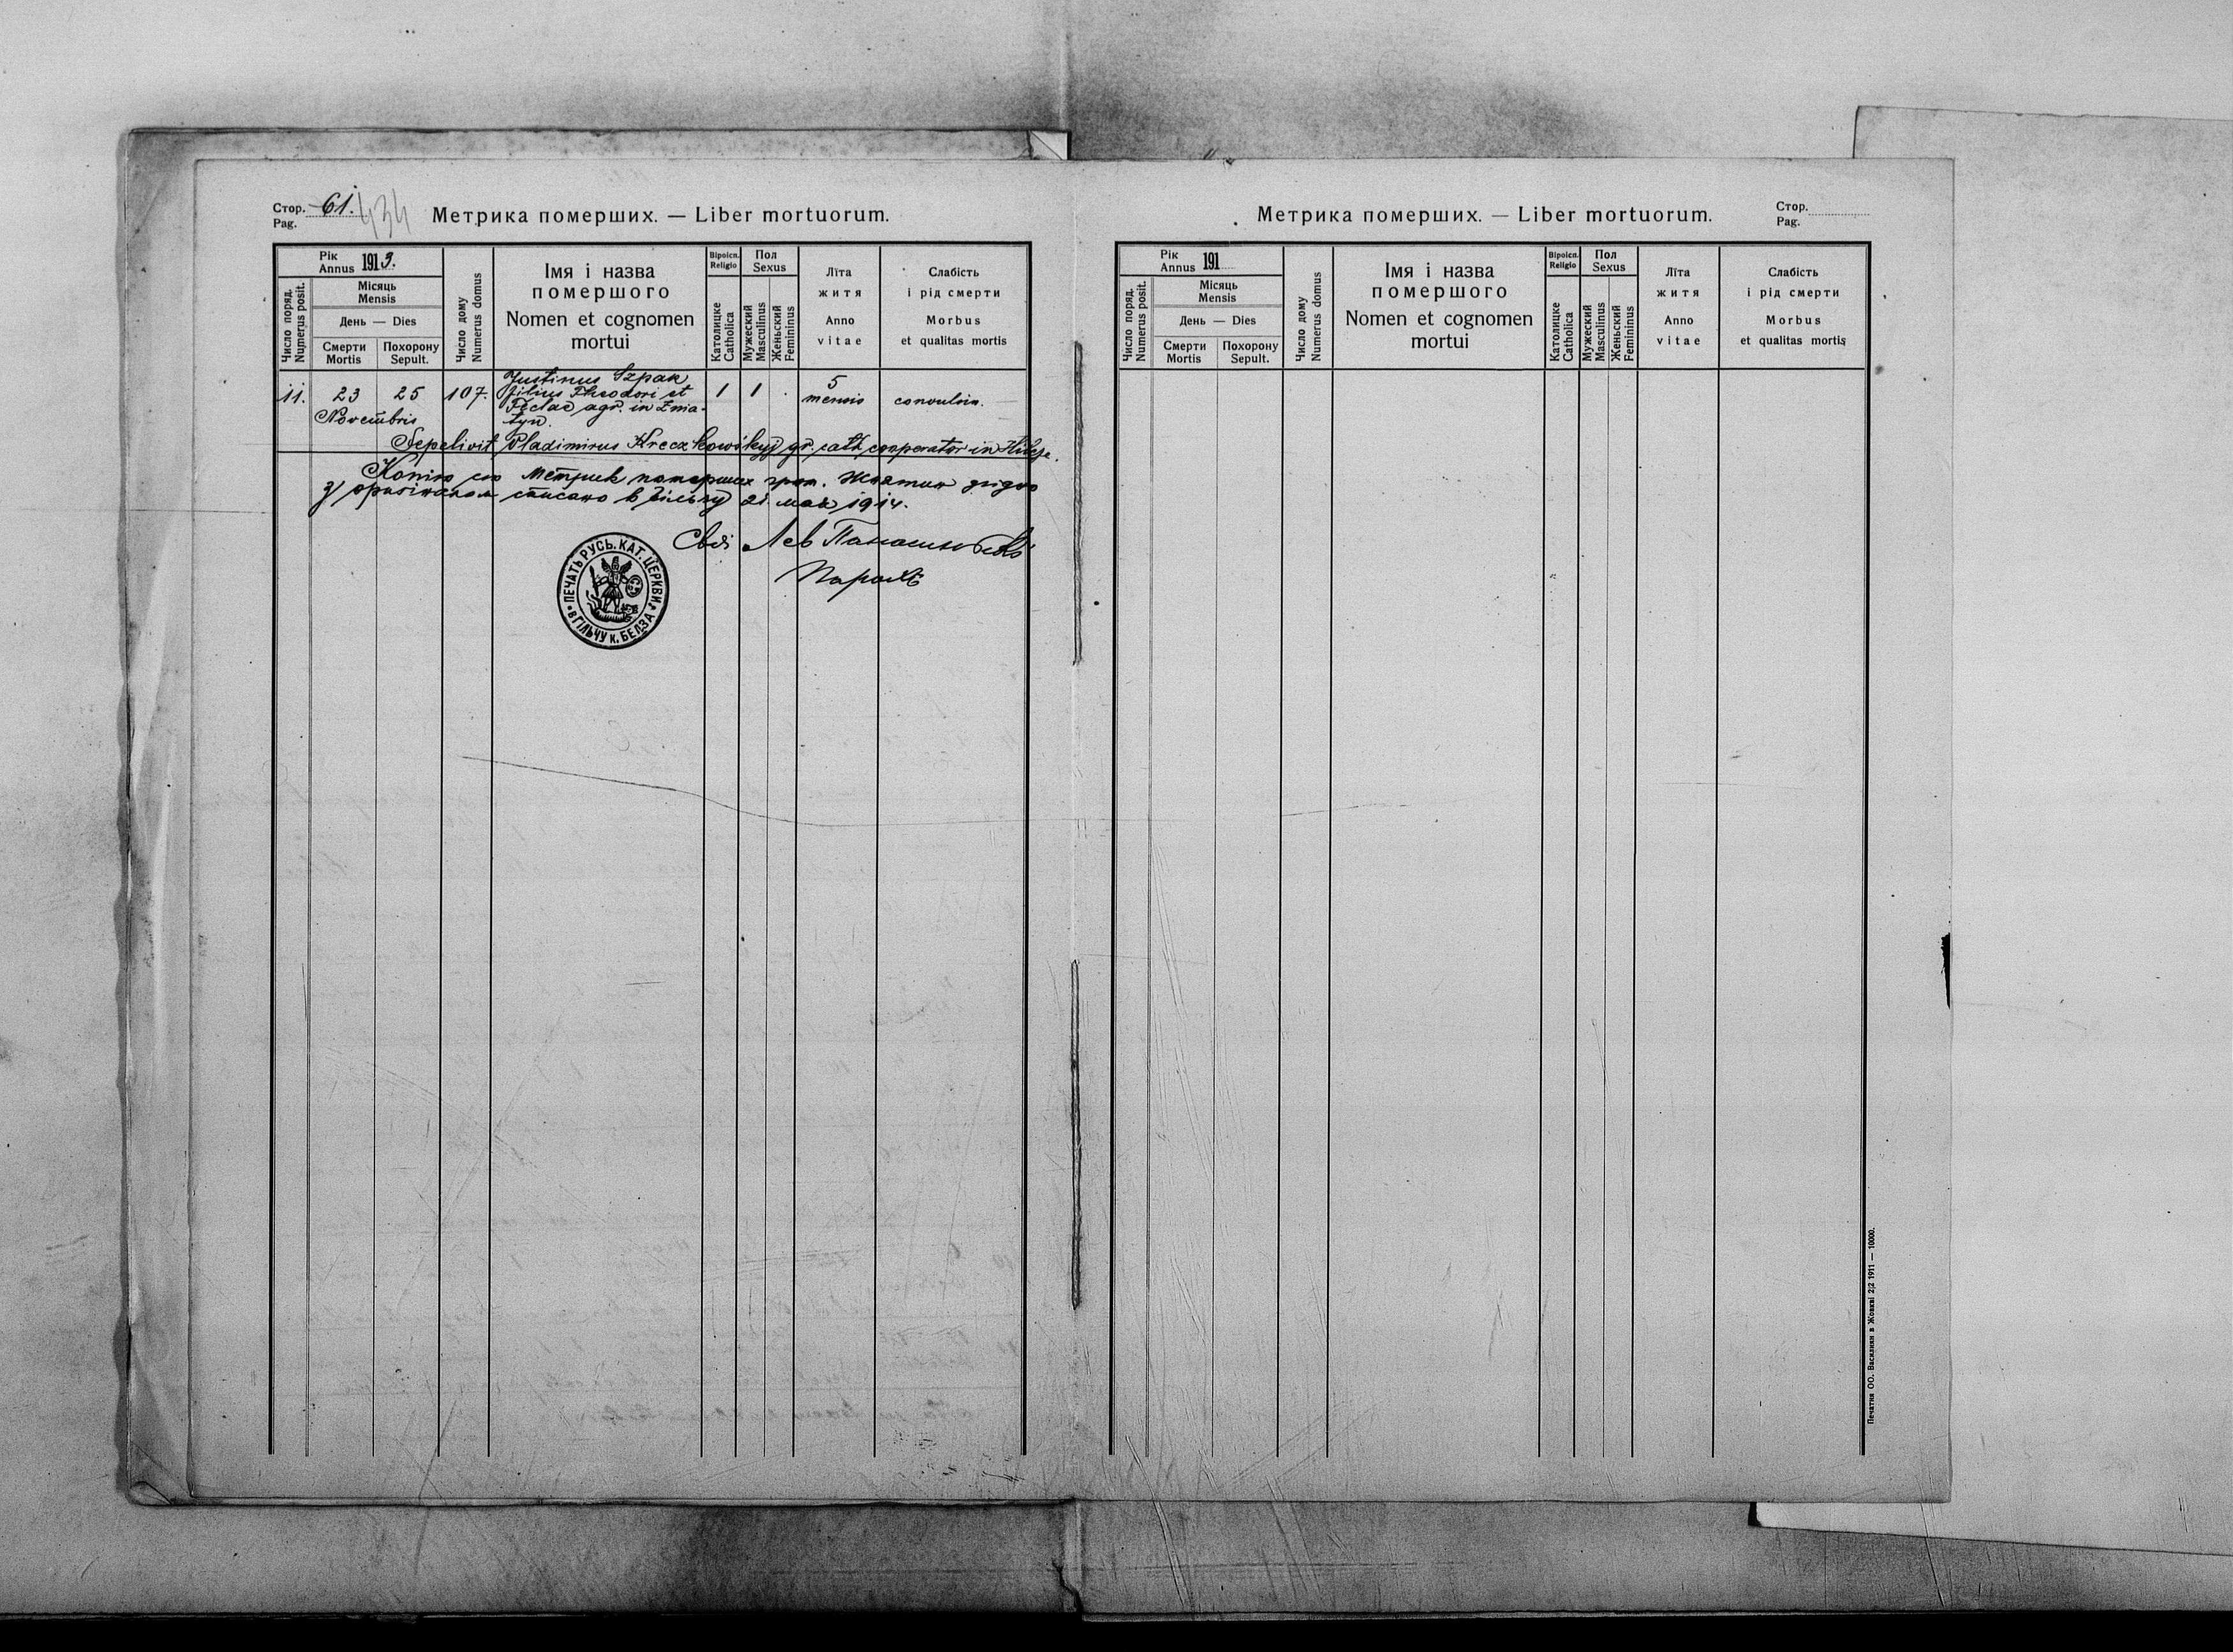 Стор. 61. 434
Pag.
Метрика померших. — Liber mortuorum.
Рік
Annus 1913.
Число поряд.
Numerus posit.
Місяць
Mensis
День — Dies
Смерти
Mortis
Похорону
Sepult.
Число дому
Numerus domus
Імя і назва
помершого
Nomen et cognomen
mortui
Віроісп.
Religio
Католицке
Catholica
Пол
Sexus
Мужеский
Masculinus
Женьский
Femininus
Лїта
житя
Anno
vitae
Слабість
і рід смерти
Morbus
et qualitas mortis
11. 23 25 107. Justinus Szpak 1 1 . 5 convulsia.
Novembris filius Theodori et mensis
Teclae agr. in Żnia-
tyn.
Sepelivit Vladimirus gr. cath cooperator in Hilcze.
Копію сю Метрик померших гром. Жнятин згідно
з оригіналом списано в Гільчу 21. мая 1914.
Лев
Парох
ПЕЧАТЬ РУСЬ. КАТ. ЦЕРКВИ
В ГІЛЬЧУ К. БЕЛЗА
Метрика померших. — Liber mortuorum.
Стор.
Pag.
Рік
Annus 191
Число поряд.
Numerus posit.
Місяць
Mensis
День — Dies
Смерти
Mortis
Похорону
Sepult.
Число дому
Numerus domus
Імя і назва
помершого
Nomen et cognomen
mortui
Віроісп.
Religio
Католицке
Catholica
Пол
Sexus
Мужеский
Masculinus
Женьский
Femininus
Лїта
житя
Anno
vitae
Слабість
і рід смерти
Morbus
et qualitas mortis
Печатня ОО. Василиян в Жовкві 2|2 1911 — 10000.